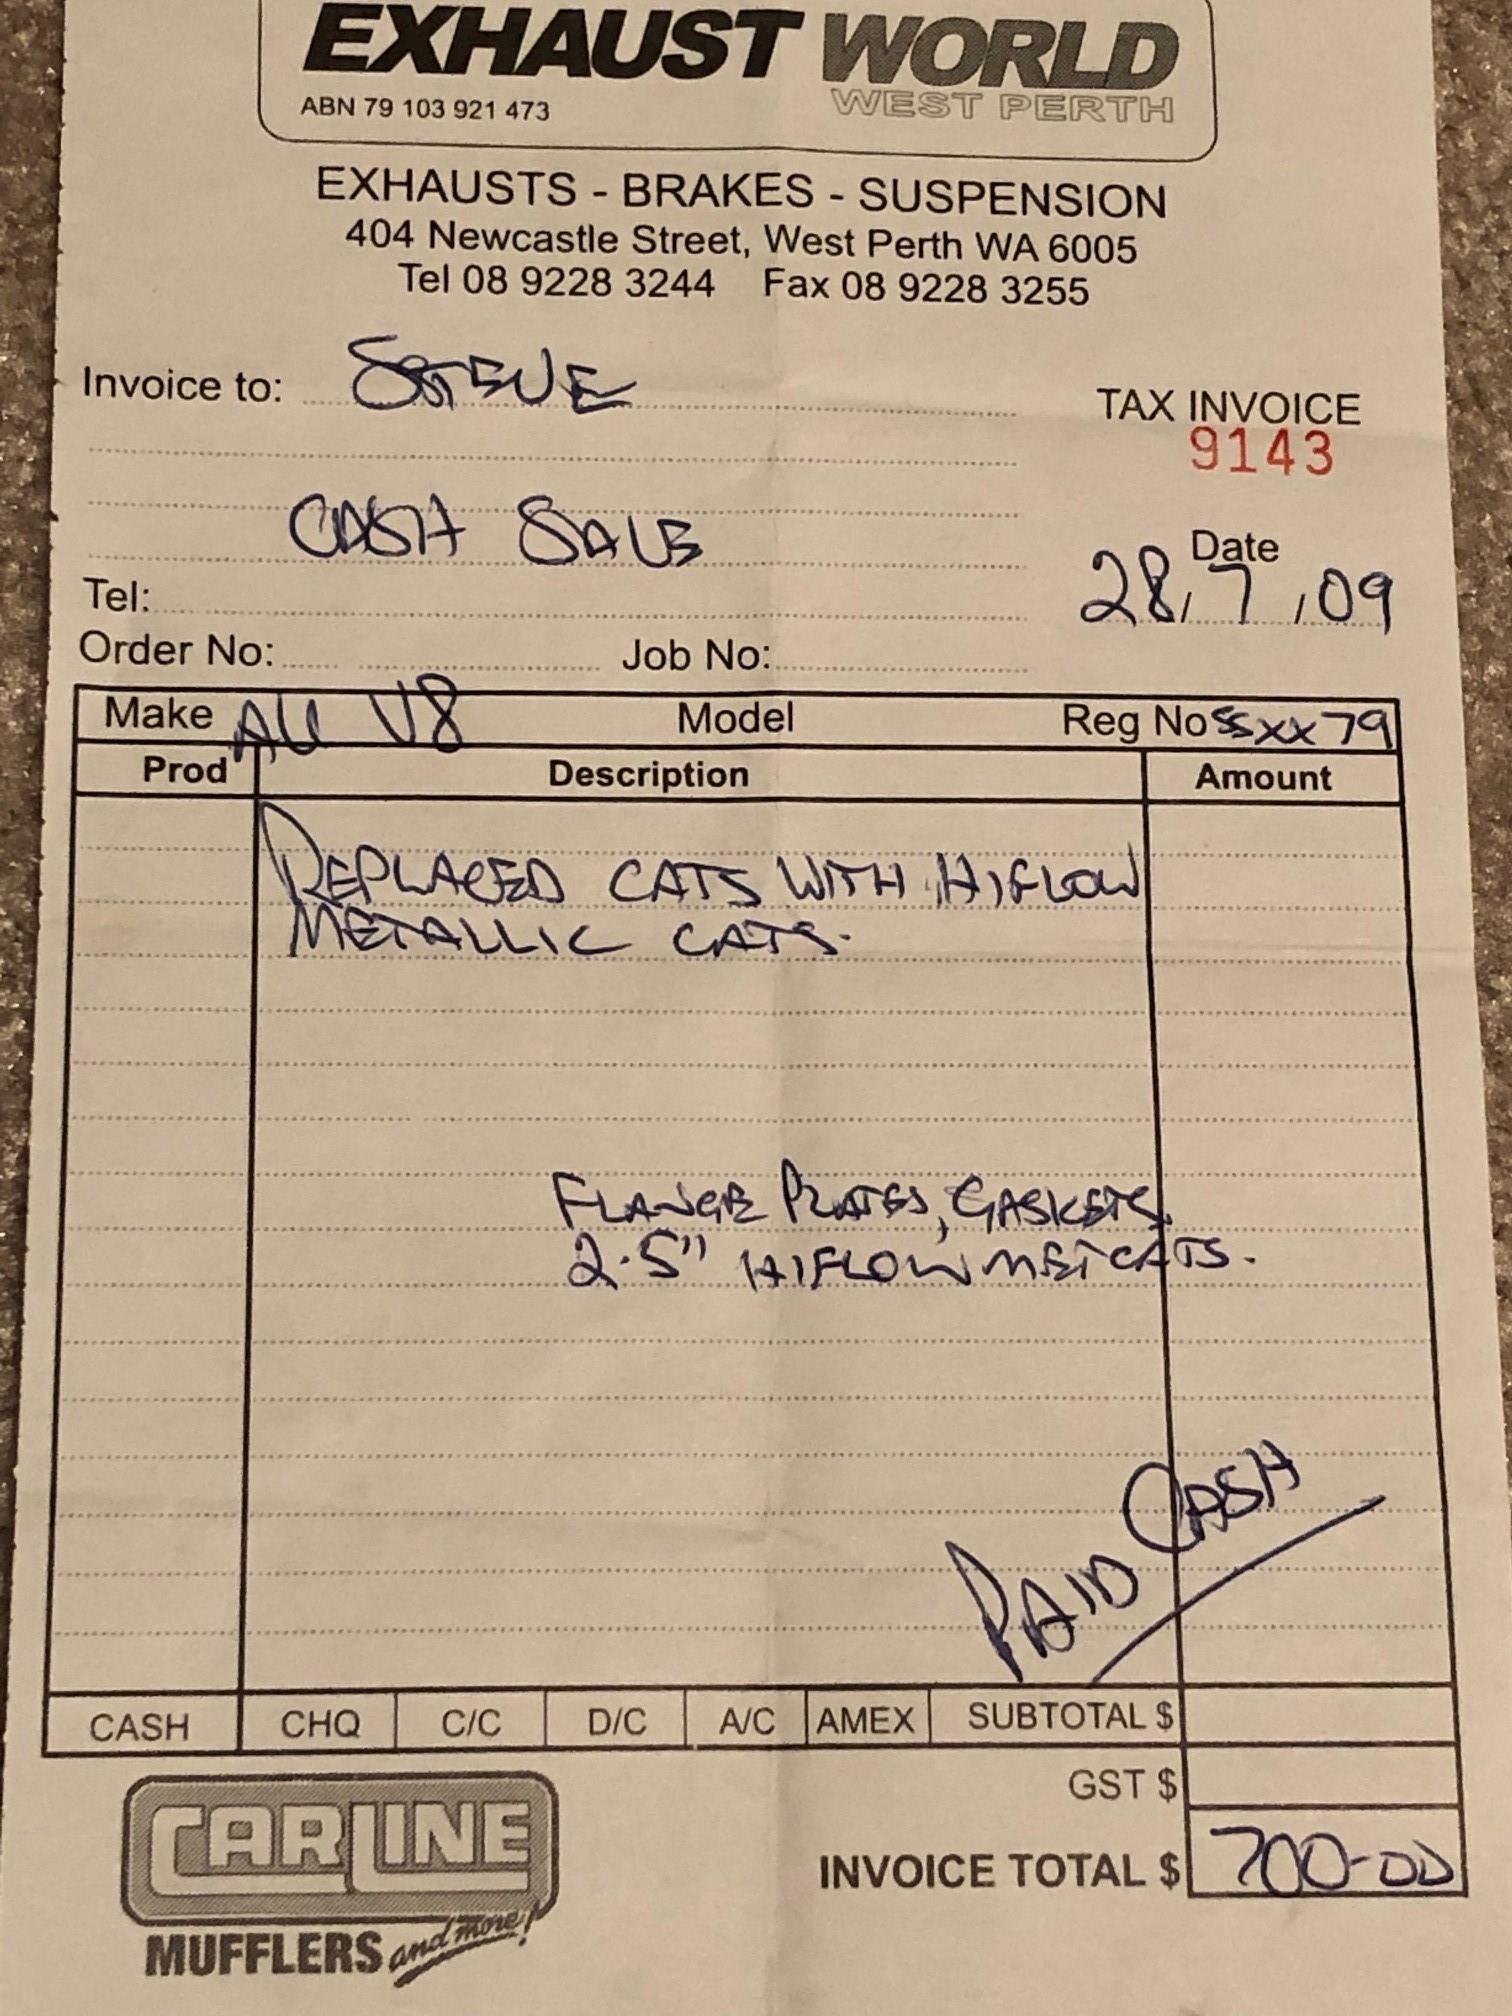 EXHAUST WORLD
ABN 79 103 921 473 WEST PERTH
EXHAUSTS - BRAKES - SUSPENSION
404 Newcastle Street, West Perth WA 6005
Tel 08 9228 3244 Fax 08 9228 3255
Invoice to: STEVE
TAX INVOICE
9143
CASH SALE
Date
28/7/09
Tel:
Order No: Job No:
Make AU V8 Model Reg No SSXX79
Prod Description Amount
REPLACED CATS WITH HIFLOW
METALLIC CATS.
FLANGE PLATES, GASKETS,
2.5" HIFLOW MET CATS.
PAID CASH
CASH CHQ C/C D/C A/C AMEX SUBTOTAL $
GST $
INVOICE TOTAL $ 700-00
CARLINE
MUFFLERS and more!